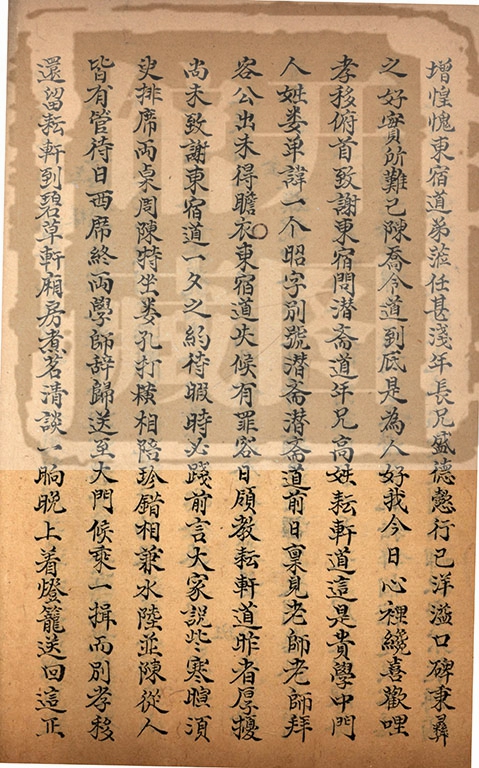 增惶愧東宿道弟蒞任甚淺年長兄盛德懿行已洋溢口碑秉彝
之好實所難已陳喬今道到底是為人好我今日心裡纔喜歡哩
孝移俯首致謝東宿問潛斋道年兄高姓耘軒道這是貴學中門
人姓娄单諱一个昭字別號潜斋潜斋道前日稟見老師老師拜
客公出未得瞻衣東宿道失候有罪容日領教耘軒道昨者厚擾
尚未致謝東宿道一夕之約待暇時必踐前言大家說些寒暄須
臾排席兩桌周陳特坐娄孔打橫相陪珍錯相兼水陸並陳從人
皆有管待日西席終兩學師辞歸送至大門候乘一揖而別孝移
還留耘軒到碧草軒廂房煮茗清談一晌晚上着燈籠送回這正